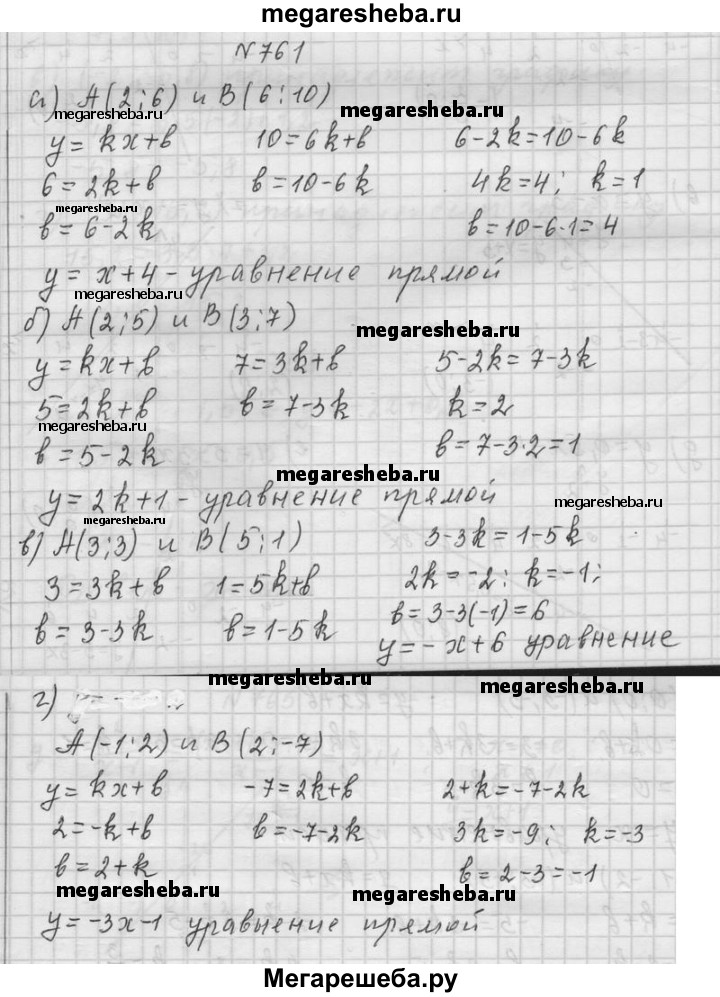 megaresheba.ru
N761
а) A(2;6) и B(6;10)
megaresheba.ru megaresheba.ru
y = kx+b 10=6k+b 6-2k=10-6k
6=2k+b b=10-6k 4k=4; k=1
megaresheba.ru
b=6-2k b=10-6·1=4
y=x+4 - уравнение прямой
megaresheba.ru
б) A(2;5) и B(3;7)
megaresheba.ru
y=kx+b 7=3k+b 5-2k=7-3k
5=2k+b b=7-3k k=2
megaresheba.ru
b=5-2k b=7-3·2=1
megaresheba.ru
y=2k+1 - уравнение прямой
megaresheba.ru megaresheba.ru
в) A(3;3) и B(5;1) 3-3k=1-5k
3=3k+b 1=5k+b 2k=-2; k=-1;
b=3-3k b=1-5k b=3-3(-1)=6
y=-x+6 уравнение
megaresheba.ru megaresheba.ru
г)
A(-1;2) и B(2;-7)
y=kx+b -7=2k+b 2+k=-7-2k
2=-k+b b=-7-2k 3k=-9; k=-3
b=2+k b=2-3=-1
megaresheba.ru megaresheba.ru
y=-3x-1 уравнение прямой
Мегарешеба.ру